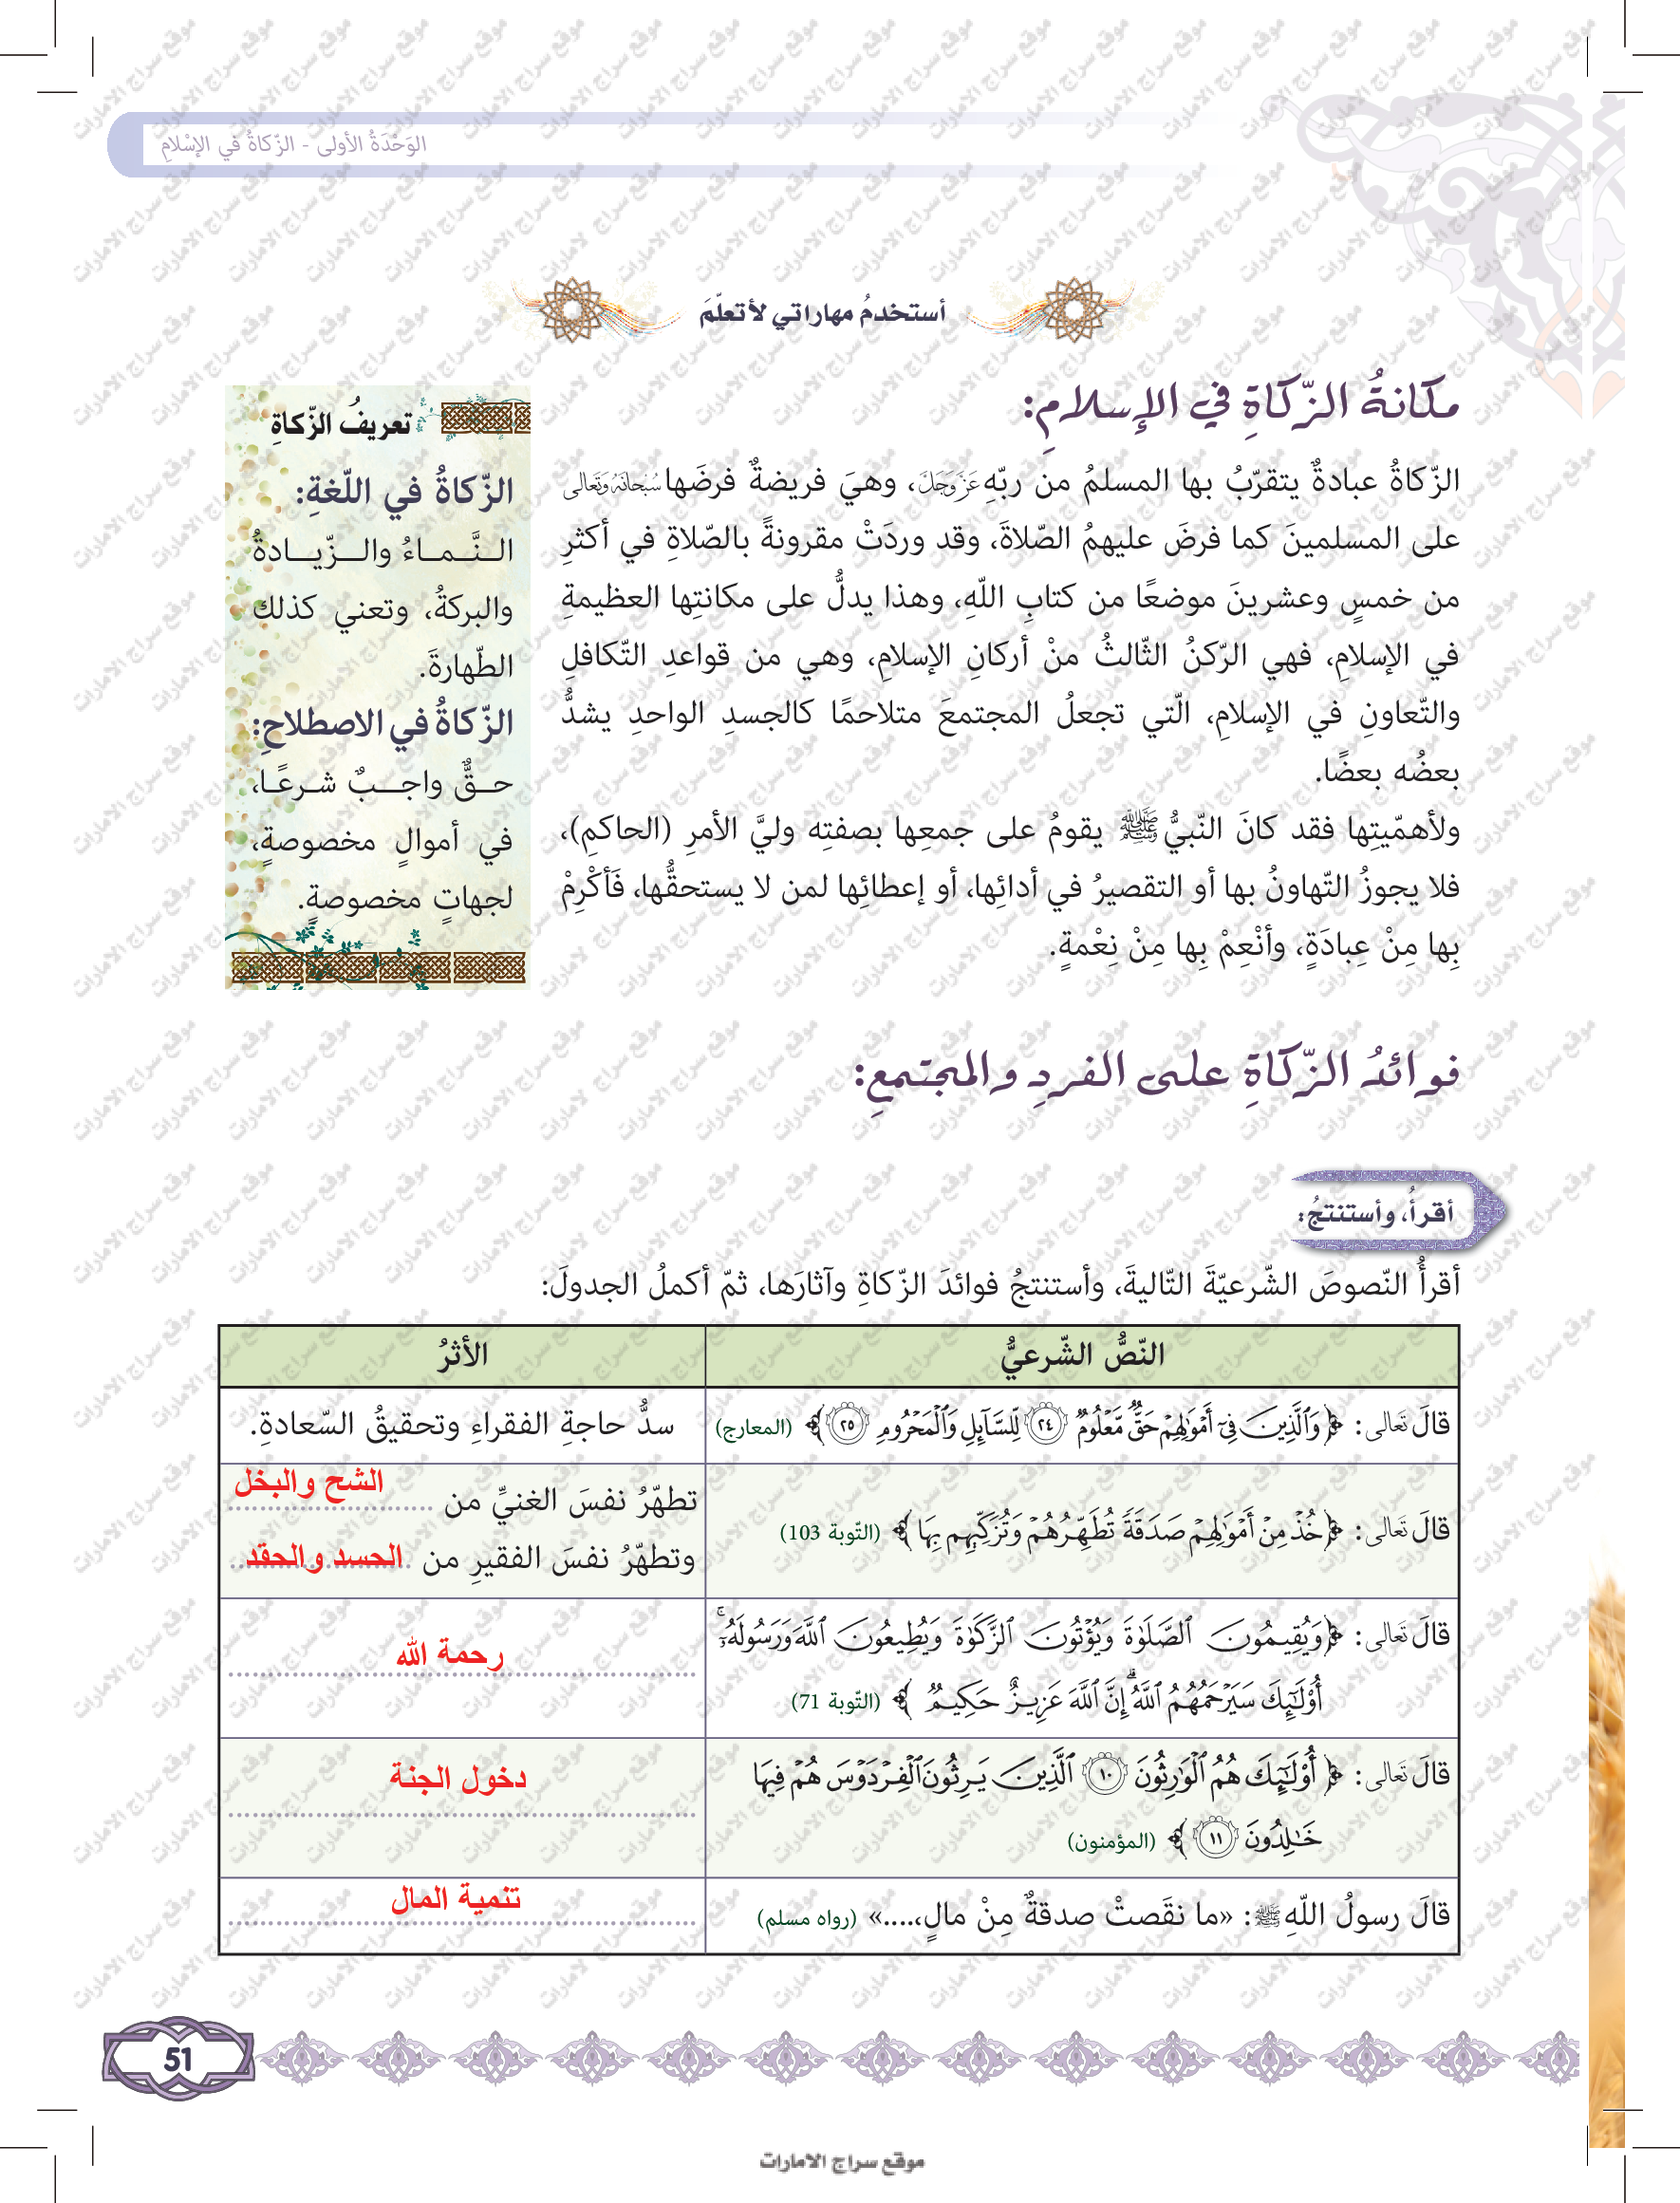 الوَحْدَةُ الأولى - الزّكاةُ في الإسْلامِ
أستخدمُ مهاراتي لأتعلّمَ
مكانةُ الزّكاةِ في الإسلامِ:
الزّكاةُ عبادةٌ يتقرّبُ بها المسلمُ من ربّهِ عَزَّوَجَلَّ، وهيَ فريضةٌ فرضَها سُبْحَانَهُ وَتَعَالَى
على المسلمينَ كما فرضَ عليهمُ الصّلاةَ، وقد وردَتْ مقرونةً بالصّلاةِ في أكثرِ
من خمسٍ وعشرينَ موضعًا من كتابِ اللّهِ، وهذا يدلُّ على مكانتِها العظيمةِ
في الإسلامِ، فهي الرّكنُ الثّالثُ منْ أركانِ الإسلامِ، وهي من قواعدِ التّكافلِ
والتّعاونِ في الإسلامِ، الّتي تجعلُ المجتمعَ متلاحمًا كالجسدِ الواحدِ يشدُّ
بعضُه بعضًا.
ولأهمّيتِها فقد كانَ النّبيُّ ﷺ يقومُ على جمعِها بصفتِه وليَّ الأمرِ (الحاكمِ)،
فلا يجوزُ التّهاونُ بها أو التقصيرُ في أدائِها، أو إعطائِها لمن لا يستحقُّها، فَأكْرِمْ
بِها مِنْ عِبادَةٍ، وأنْعِمْ بِها مِنْ نِعْمةٍ.
تعريفُ الزّكاةِ
الزّكاةُ في اللّغةِ:
النَّماءُ والزّيادةُ
والبركةُ، وتعني كذلك
الطّهارةَ.
الزّكاةُ في الاصطلاحِ:
حقٌّ واجبٌ شرعًا،
في أموالٍ مخصوصةٍ،
لجهاتٍ مخصوصةٍ.
فوائدُ الزّكاةِ على الفردِ والمجتمعِ:
أقرأُ، وأستنتجُ:
أقرأُ النّصوصَ الشّرعيّةَ التّاليةَ، وأستنتجُ فوائدَ الزّكاةِ وآثارَها، ثمّ أكملُ الجدولَ:
النّصُّ الشّرعيُّ
الأثرُ
قالَ تَعَالى: ﴿وَٱلَّذِينَ فِىٓ أَمْوَٰلِهِمْ حَقٌّ مَّعْلُومٌ ٢٤ لِّلسَّآئِلِ وَٱلْمَحْرُومِ ٢٥﴾ (المعارج)
سدُّ حاجةِ الفقراءِ وتحقيقُ السّعادةِ.
قالَ تَعَالى: ﴿خُذْ مِنْ أَمْوَٰلِهِمْ صَدَقَةً تُطَهِّرُهُمْ وَتُزَكِّيهِم بِهَا﴾ (التّوبة 103)
تطهّرُ نفسَ الغنيِّ من الشح والبخل
وتطهّرُ نفسَ الفقيرِ من الحسد والحقد
قالَ تَعَالى: ﴿وَيُقِيمُونَ ٱلصَّلَوٰةَ وَيُؤْتُونَ ٱلزَّكَوٰةَ وَيُطِيعُونَ ٱللَّهَ وَرَسُولَهُۥٓ ۚ
أُو۟لَٰٓئِكَ سَيَرْحَمُهُمُ ٱللَّهُ ۗ إِنَّ ٱللَّهَ عَزِيزٌ حَكِيمٌ﴾ (التّوبة 71)
رحمة الله
قالَ تَعَالى: ﴿أُو۟لَٰٓئِكَ هُمُ ٱلْوَٰرِثُونَ ١٠ ٱلَّذِينَ يَرِثُونَ ٱلْفِرْدَوْسَ هُمْ فِيهَا
خَٰلِدُونَ ١١﴾ (المؤمنون)
دخول الجنة
قالَ رسولُ اللّهِ ﷺ: «ما نقَصتْ صدقةٌ مِنْ مالٍ،....» (رواه مسلم)
تنمية المال
51
موقع سراج الامارات